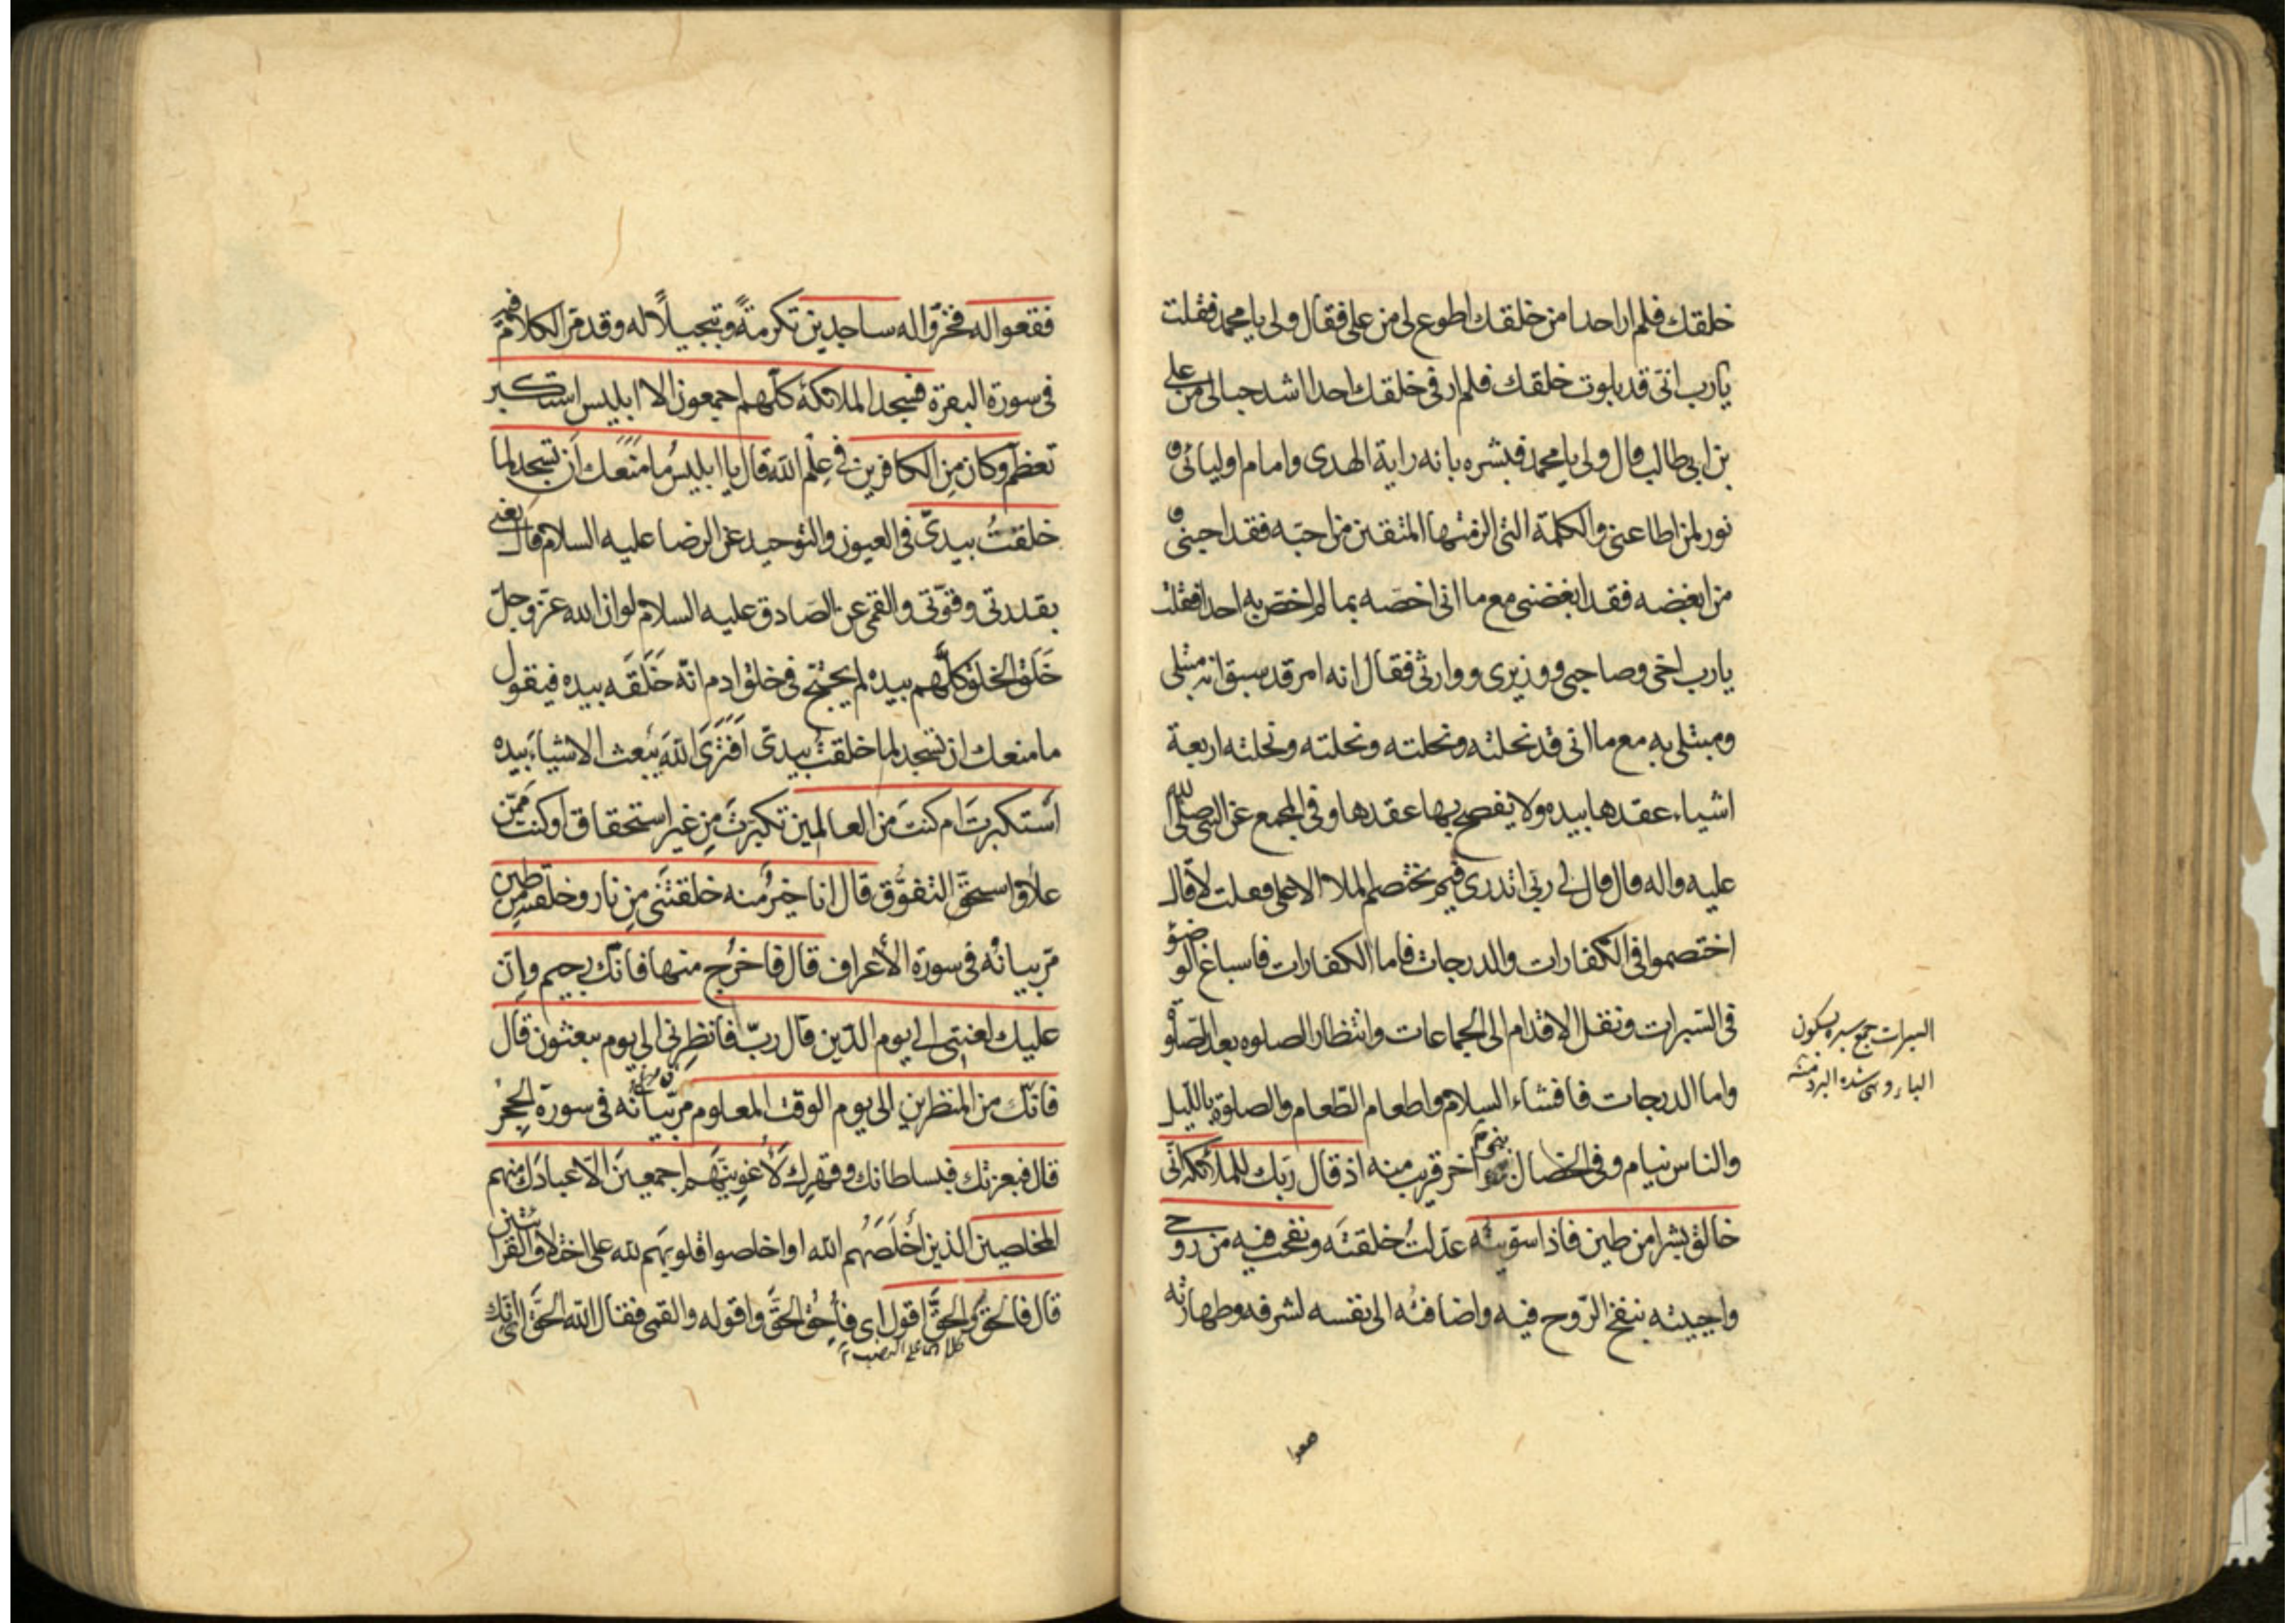 خلقك فلم ار احدا من خلقك اطوع لى من على فقال ولى يا محمد فقلت
يا رب انى قد بلوت خلقك فلم ار فى خلقك احدا اشد حبا لى من على
بن ابى طالب قال ولى يا محمد فبشره بانه راية الهدى وامام اوليائى و
نور لمن اطاعنى والكلمة التى الزمتها المتقين من احبه فقد احبنى و
من ابغضه فقد ابغضنى مع ما انى اخصّه بما لم اخصّ به احدا فقلت
يا رب اخى وصاحبى ووزيرى ووارثى فقال انه امر قد سبق انه مبتلى
ومبتلى به مع ما انى قد نحلته ونحلته ونحلته ونحلته اربعة
اشياء عقدها بيده ولا يفصح بها عقدها وفى المجمع عن النبى صلى الله
عليه واله قال قال لى ربى اتدرى فيم يختصم الملاء الاعلى فقلت لا قال
اختصموا فى الكفارات والدرجات فاما الكفارات فاسباغ الوضوء
فى السبرات ونقل الاقدام الى الجماعات وانتظار الصلوة بعد الصلوة
واما الدرجات فافشاء السلام واطعام الطّعام والصلوة بالليل
والناس نيام وفى الخصال بنحو آخر قريب منه اذ قال ربك للملائكة انى
خالق بشرا من طين فاذا سوّيته عدلت خلقته ونفخت فيه من روحى
واحييته بنفخ الرّوح فيه واضافته الى نفسه لشرفه وطهارته
السبرات جمع سبره بسكون
الباء وهى شدة البرد منه
فقعوا له فخرّوا له ساجدين تكرمةً وتبجيلاً له وقد مرّ الكلام فيه
فى سورة البقرة فسجد الملائكة كلّهم اجمعون الا ابليس استكبر
تعظّم وكان من الكافرين فى علم الله قال يا ابليس ما منعك ان تسجد لما
خلقتُ بيدىّ فى العيون والتوحيد عن الرضا عليه السلام قال يعنى
بقدرتى وقوّتى والقمى عن الصّادق عليه السلام لو ان الله عزّ وجلّ
خَلَقَ الخلق كلّهم بيده لم يحتجّ فى خلق ادم انّه خَلَقَه بيده فيقول
ما منعك ان تسجد لما خلقت بيدىّ اَفَتَرَى اللهَ يبعث الاشياء بيده
استكبرتَ ام كنتَ من العالمين تكبّرتَ من غير استحقاق او كنت ممّن
علا واستحقّ التفوّق قال انا خيرٌ منه خلقتنى من نار وخلقته من طين
مرّ بيانُه فى سورة الأعراف قال فاخرُج منها فانّك رجيم وانّ
عليك لعنتى الى يوم الدّين قال ربّ فانظِرنى الى يوم يبعثون قال
فانّك من المنظرين الى يوم الوقت المعلوم مرّ بيانُه فى سورة الحِجر
قال فبعزتك فبسلطانك وقهرك لأغوينّهم اجمعين الّا عبادك منهم
المخلصين الذين أخلَصَهُم الله او اخلصوا قلوبهم لله على اختلاف القرائتين
قال فالحقّ والحقَّ اقول اى فأُحِقّ الحقَّ واقوله والقمى فقال الله الحقّ اى انّك